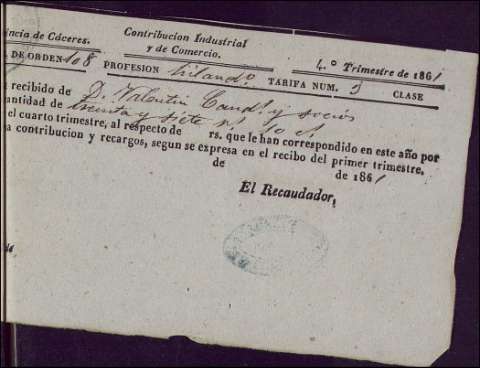 incia de Cáceres. Contribucion Industrial y de Comercio. 4.º Trimestre de 1861
DE ORDEN 108 PROFESION hiland.º TARIFA NUM. 3 CLASE
e recibido de D. Valentin Cand.l y socios
antidad de treinta y siete rs. 50 cs.
el cuarto trimestre, al respecto de rs. que le han correspondido en este año por
a contribucion y recargos, segun se expresa en el recibo del primer trimestre.
de de 1861
El Recaudador,